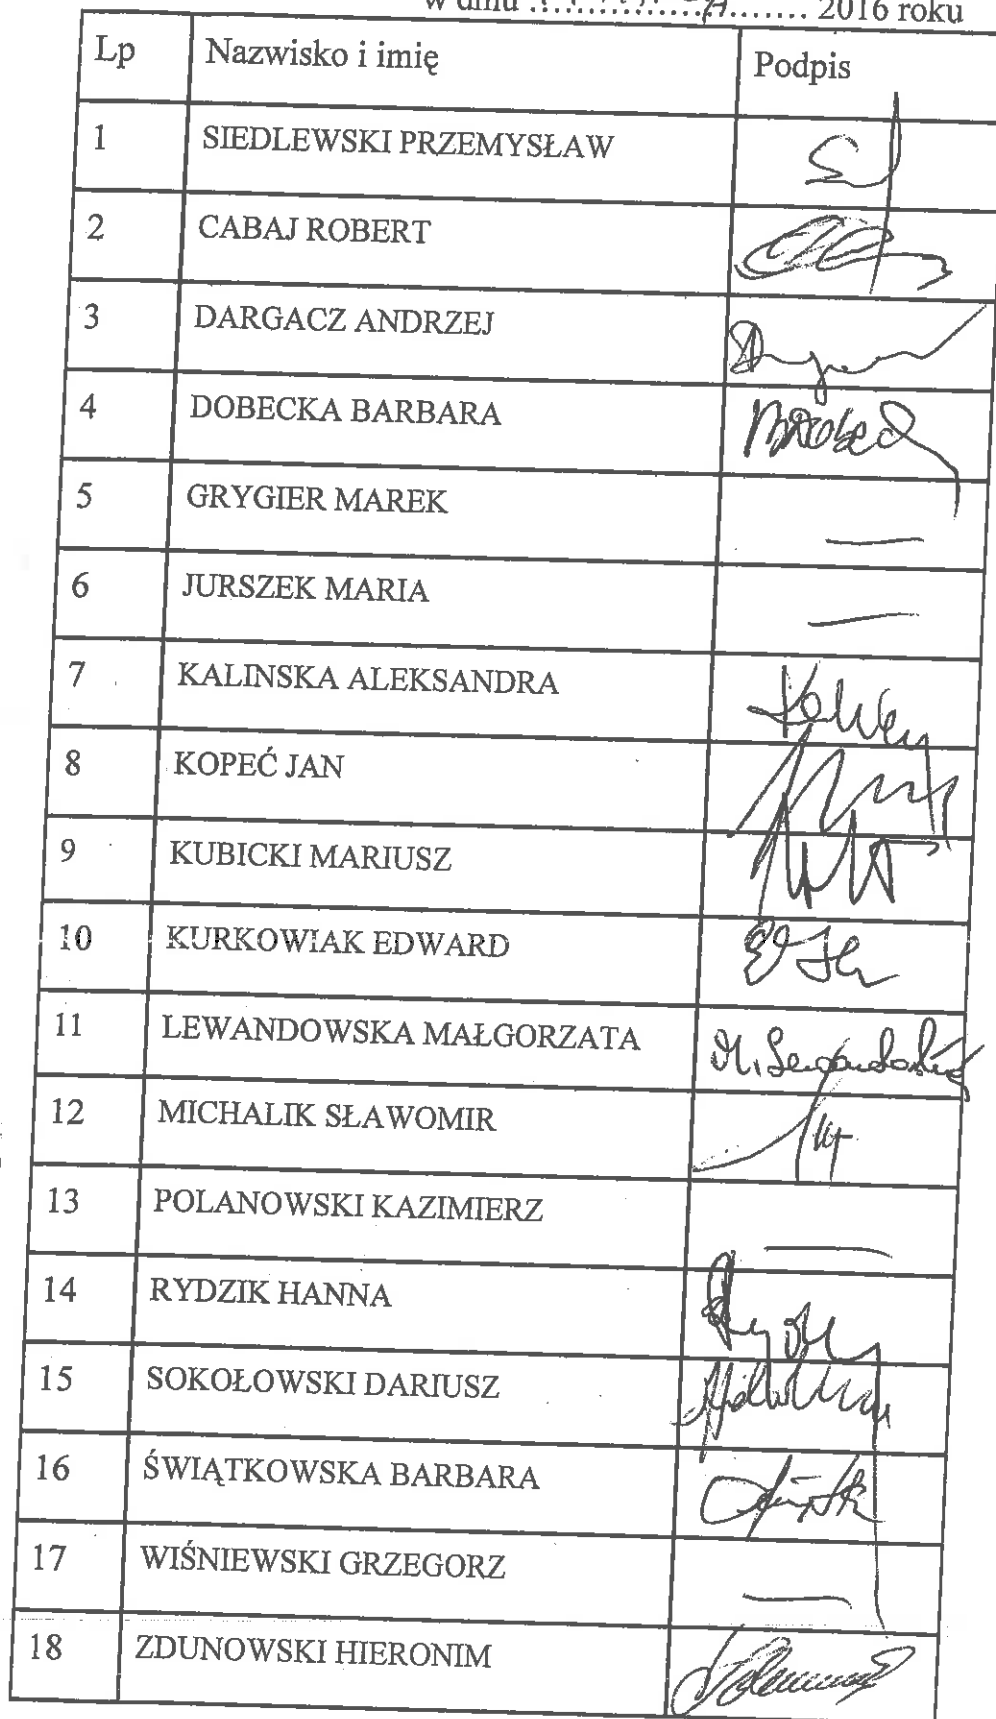 w dniu 2016 roku
Lp Nazwisko i imię Podpis
1 SIEDLEWSKI PRZEMYSŁAW
2 CABAJ ROBERT
3 DARGACZ ANDRZEJ
4 DOBECKA BARBARA
5 GRYGIER MAREK —
6 JURSZEK MARIA —
7 KALINSKA ALEKSANDRA
8 KOPEĆ JAN
9 KUBICKI MARIUSZ
10 KURKOWIAK EDWARD
11 LEWANDOWSKA MAŁGORZATA M. Lewandowska
12 MICHALIK SŁAWOMIR
13 POLANOWSKI KAZIMIERZ —
14 RYDZIK HANNA
15 SOKOŁOWSKI DARIUSZ
16 ŚWIĄTKOWSKA BARBARA
17 WIŚNIEWSKI GRZEGORZ —
18 ZDUNOWSKI HIERONIM